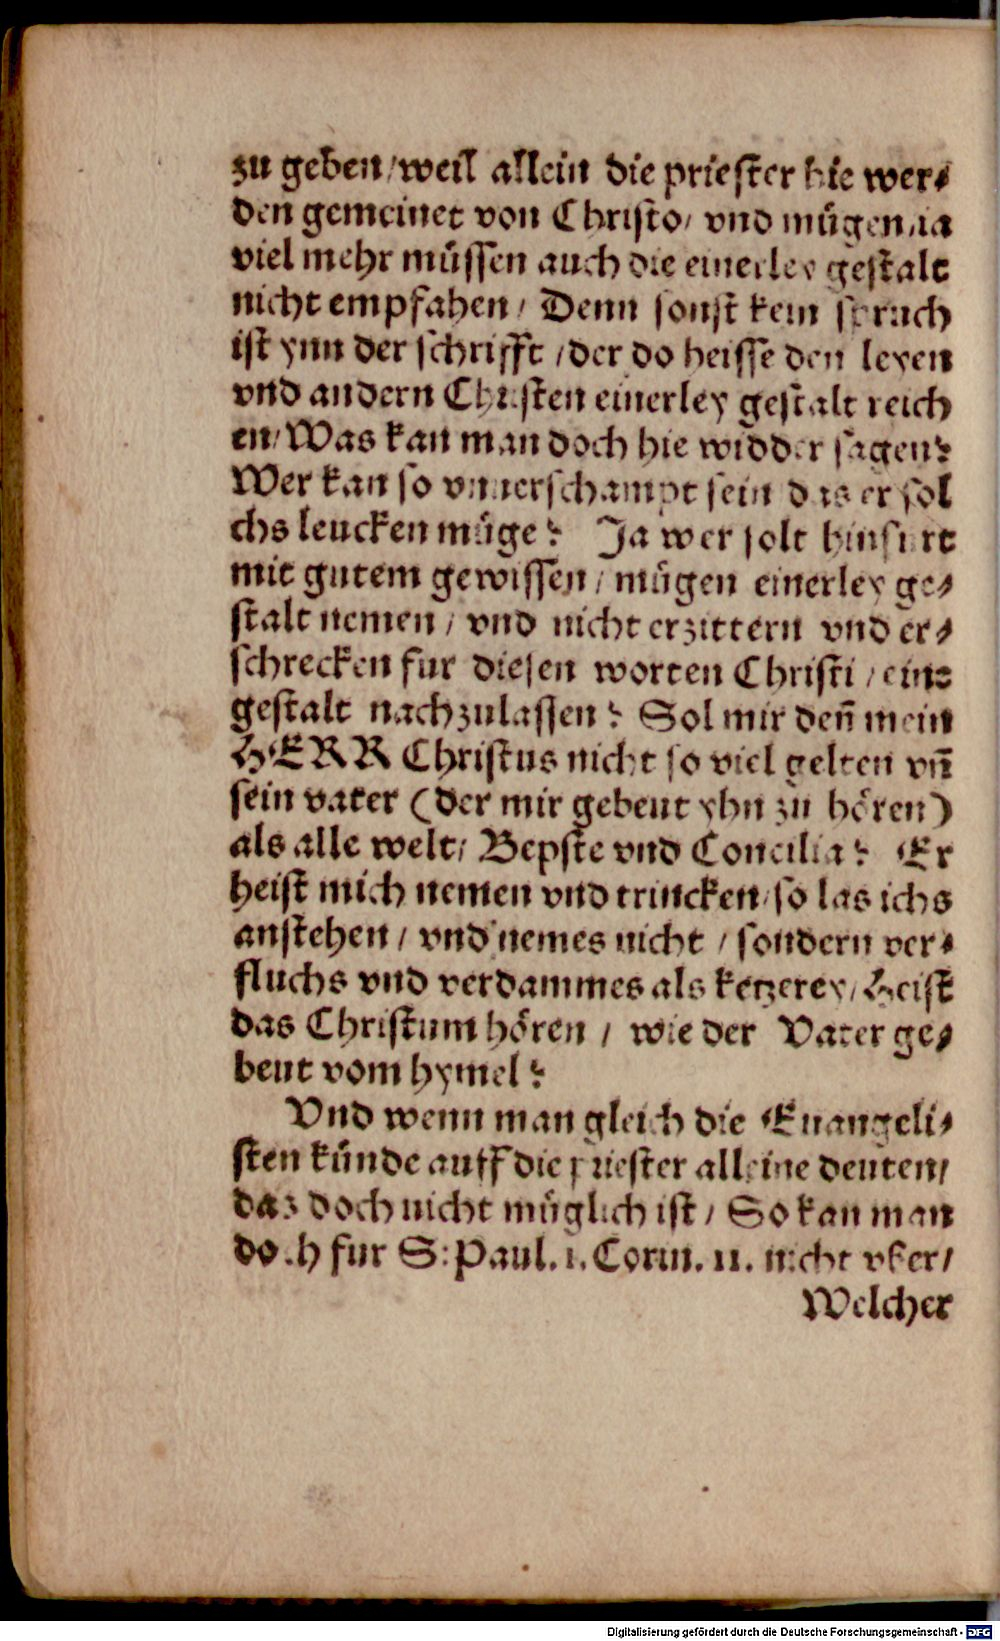 zu geben/weil allein die priester hie wer⸗
den gemeinet von Christo/ vnd mügen/ia
viel mehr müssen auch die einerley gestalt
nicht empfahen/ Denn sonst kein spruch
ist ynn der schrifft /der do heisse den leyen
vnd andern Christen einerley gestalt reich
en/Was kan man doch hie widder sagen?
Wer kan so vnuerschampt sein das er sol
chs leucken müge? Ja wer solt hinfurt
mit gutem gewissen/ mügen einerley ge⸗
stalt nemen/ vnd nicht erzittern vnd er⸗
schrecken fur diesen worten Christi /eine
gestalt nachzulassen? Sol mir deñ mein
HERR Christus nicht so viel gelten vñ
sein vater (der mir gebeut yhn zu hören)
als alle welt/ Bepste vnd Concilia? Er
heist mich nemen vnd trincken/so las ichs
anstehen/ vnd nemes nicht /sondern ver⸗
fluchs vnd verdammes als ketzerey/Heist
das Christum hören/ wie der Vater ge⸗
beut vom hymel?
Vnd wenn man gleich die Euangeli⸗
sten künde auff die priester alleine deuten/
das doch nicht müglich ist/ So kan man
doch fur S: Paul. 1. Corin. 11. nicht vber/
Welcher
Digitalisierung gefördert durch die Deutsche Forschungsgemeinschaft - DFG